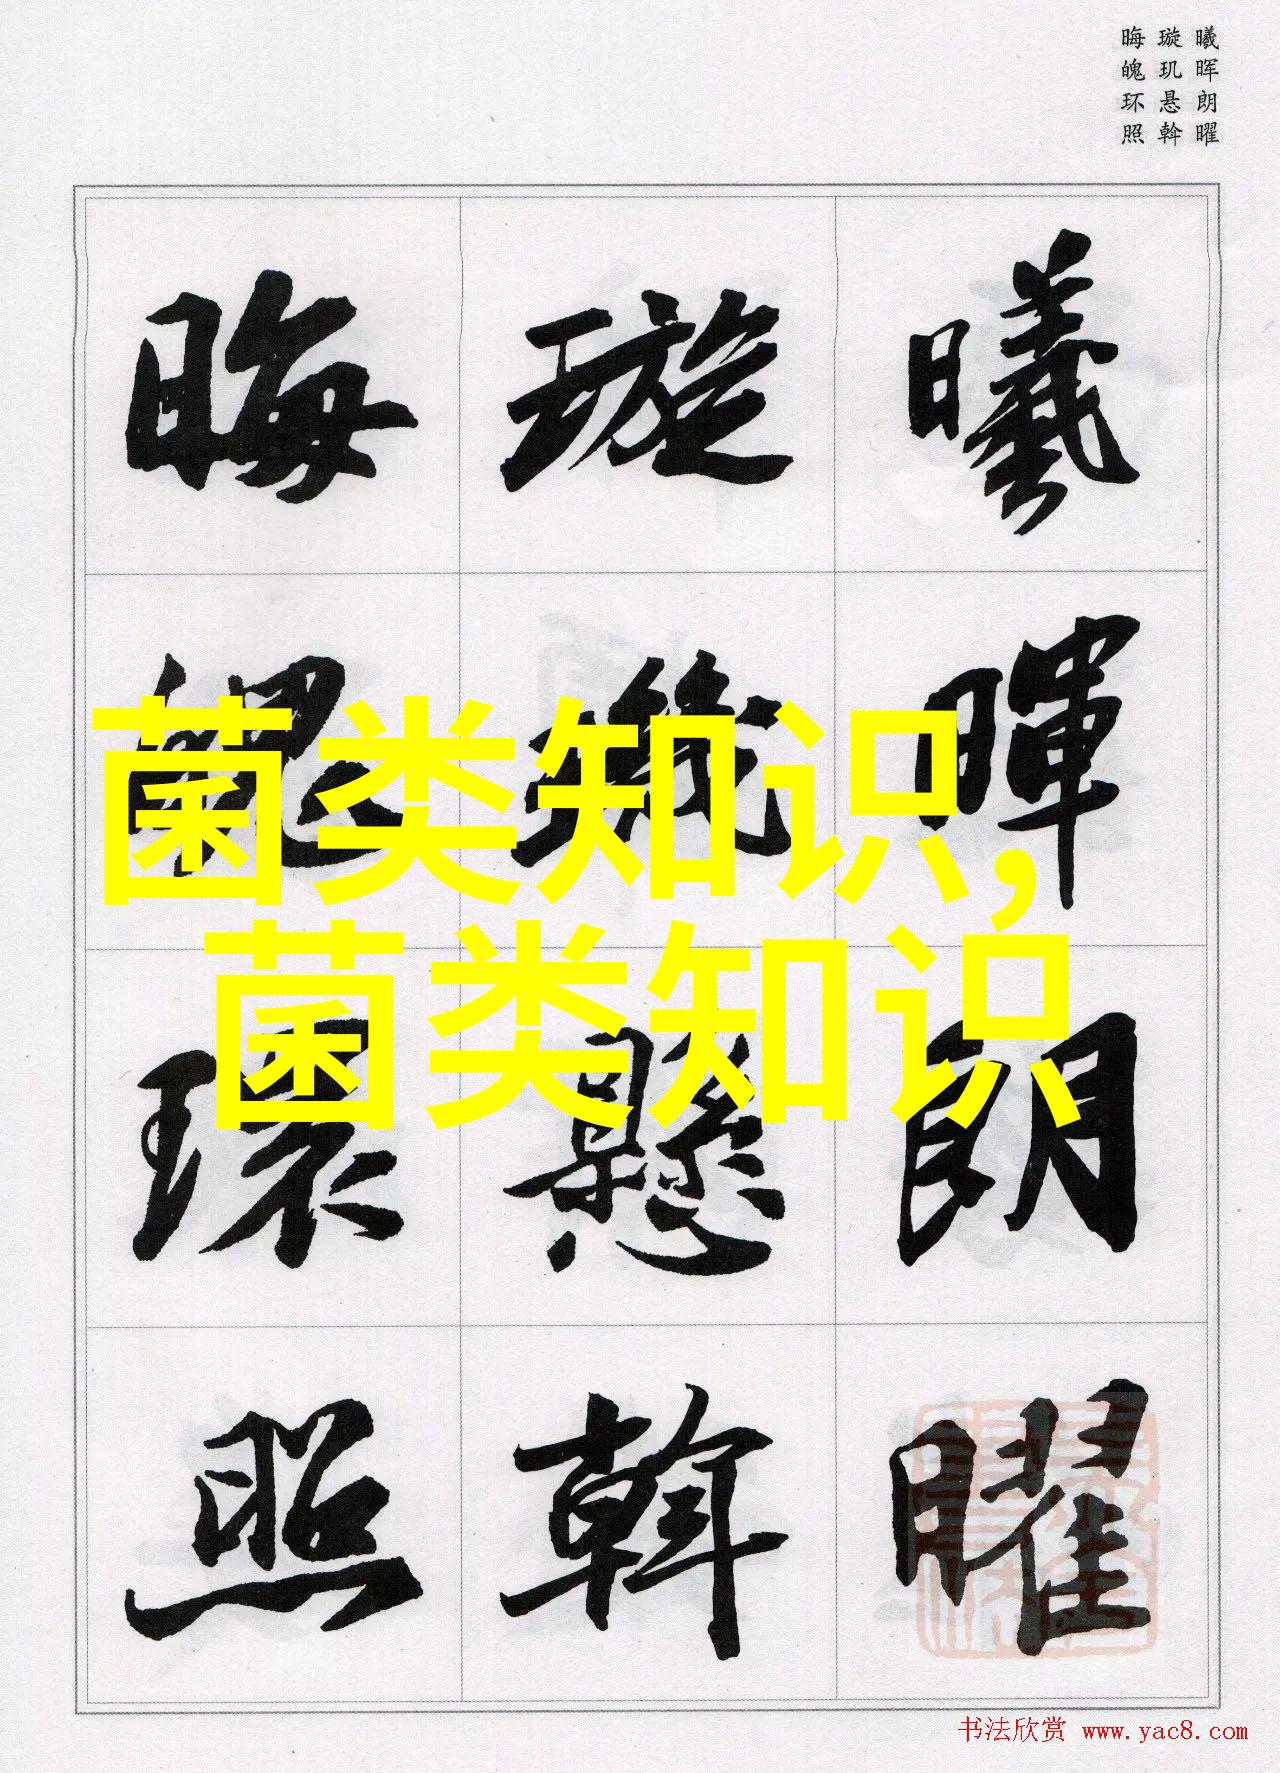 曦晖朗曜
璇玑悬斡
晦魄环照
曦暉朗曜
璇璣懸斡
晦魄環照
菌类知识，
菌类知识
书法欣赏 www.yac8.com